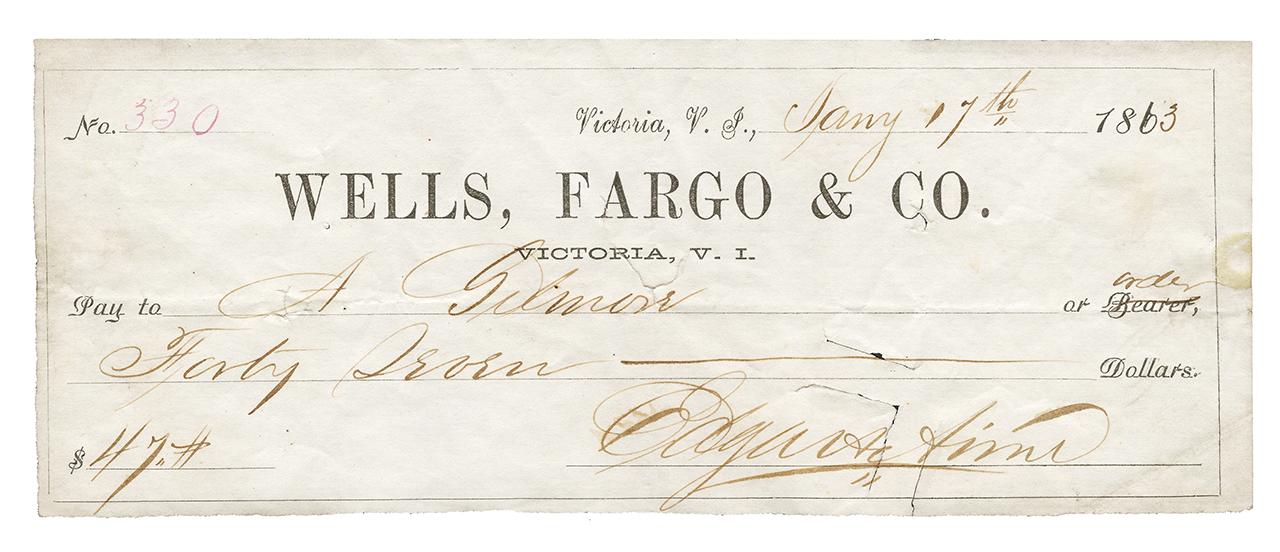 No. 330 Victoria, V. I., Jany 17th 1863
WELLS, FARGO & CO.
VICTORIA, V. I.
order
Pay to A. Gilmore or Bearer,
Forty Seven Dollars.
$ 47.#
Edgar